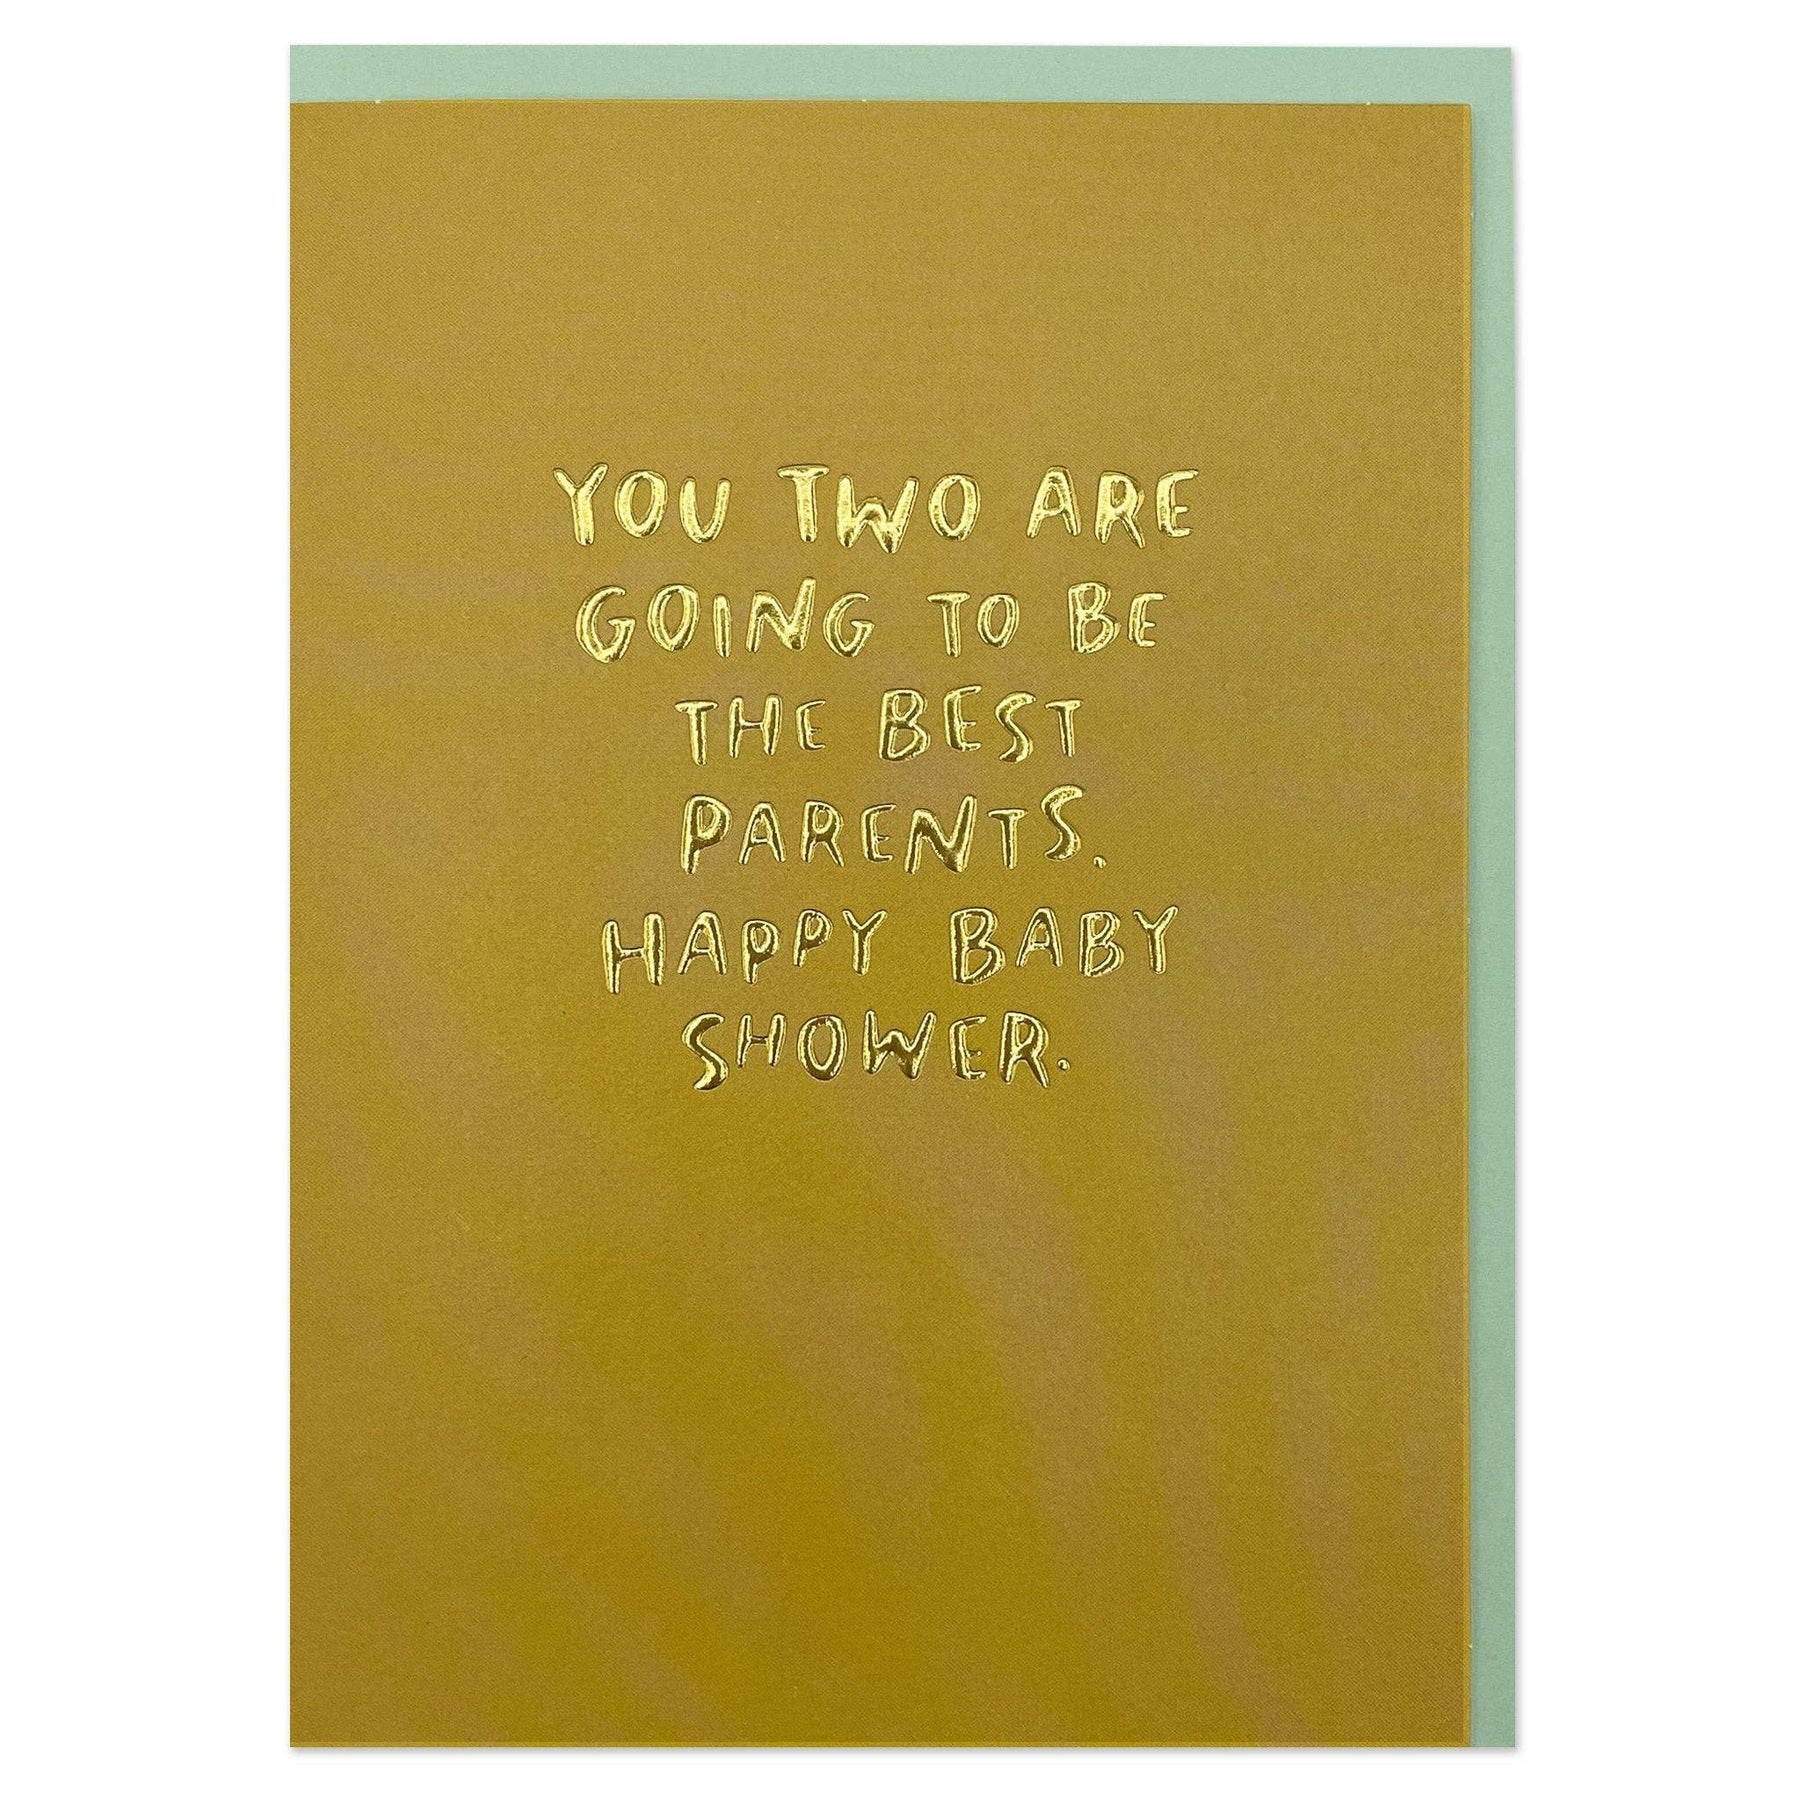 YOU TWO ARE
GOING TO BE
THE BEST
PARENTS.
HAPPY BABY
SHOWER.